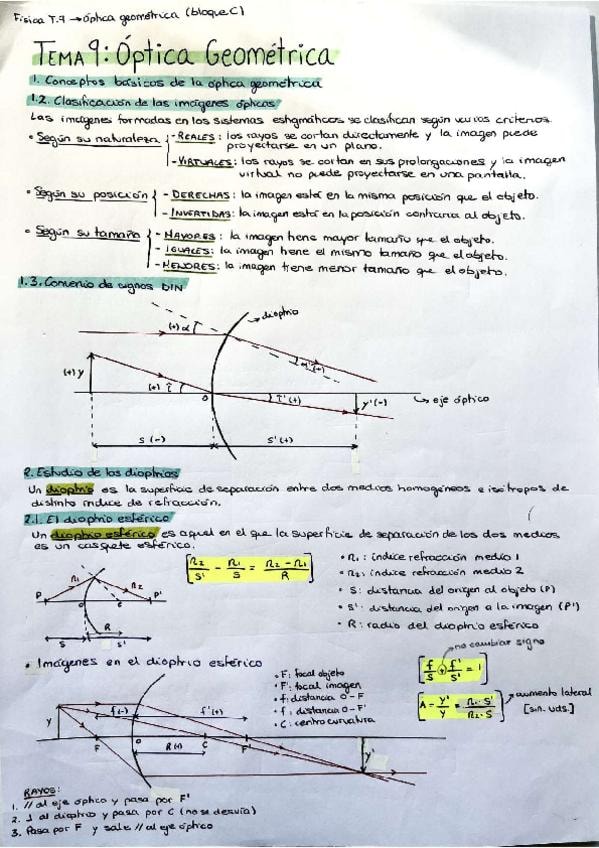 Física T.9 → óptica geométrica (bloque C)
TEMA 9: ÓPTICA GEOMÉTRICA
1. Conceptos básicos de la óptica geométrica
1.2. Clasificación de las imágenes ópticas
Las imágenes formadas en los sistemas estigmáticos se clasifican según varios criterios.
• Según su naturaleza { - REALES: los rayos se cortan directamente y la imagen puede
proyectarse en un plano.
- VIRTUALES: los rayos se cortan en sus prolongaciones y la imagen
virtual no puede proyectarse en una pantalla.
• Según su posición { - DERECHAS: la imagen está en la misma posición que el objeto.
- INVERTIDAS: la imagen está en la posición contraria al objeto.
• Según su tamaño { - MAYORES: la imagen tiene mayor tamaño que el objeto.
- IGUALES: la imagen tiene el mismo tamaño que el objeto.
- MENORES: la imagen tiene menor tamaño que el objeto.
1.3. Convenio de signos DIN
→ dioptrio
(+) α
α' (+)
(+) y
(+) î
O
î' (+)
y' (-)
→ eje óptico
s (-)
s' (+)
2. Estudio de los dioptrios
Un dioptrio es la superficie de separación entre dos medios homogéneos e isótropos de
distinto índice de refracción.
2.1. El dioptrio esférico
Un dioptrio esférico es aquel en el que la superficie de separación de los dos medios
es un casquete esférico.
[n2/s' - n1/s = (n2 - n1)/R]
• n1: índice refracción medio 1
• n2: índice refracción medio 2
• S: distancia del origen al objeto (P)
• S': distancia del origen a la imagen (P')
• R: radio del dioptrio esférico
n1 n2
P O C P'
R
s s'
• Imágenes en el dioptrio esférico
• F: focal objeto
• F': focal imagen
• f: distancia O-F
• f': distancia O-F'
• C: centro curvatura
→ no cambiar signo
[f/s + f'/s' = 1]
[A = y'/y = n1·s'/n2·s] → aumento lateral
[sin. uds.]
f (-) f' (+)
y
F O R (+) C F'
y'
RAYOS:
1. // al eje óptico y pasa por F'
2. ⊥ al dioptrio y pasa por C (no se desvía)
3. Pasa por F y sale // al eje óptico